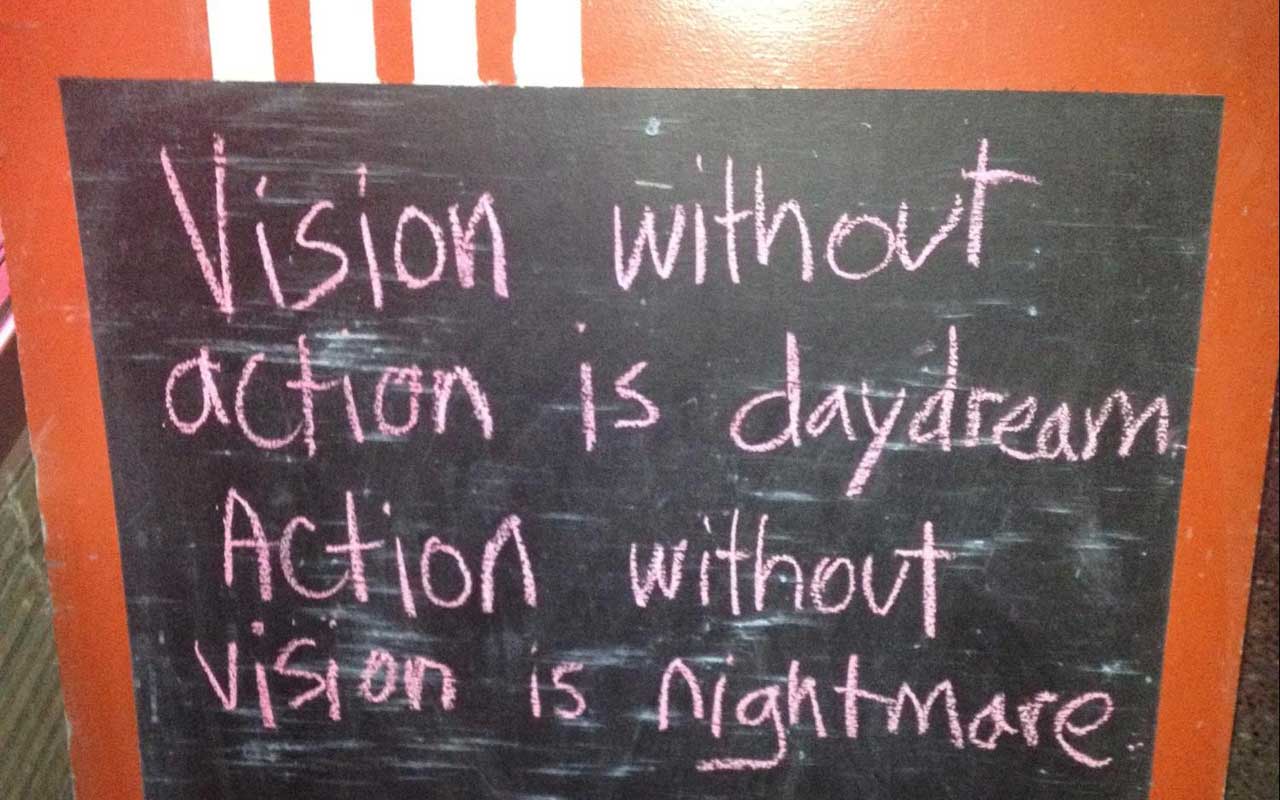 Vision without
action is daydream.
Action without
vision is nightmare.